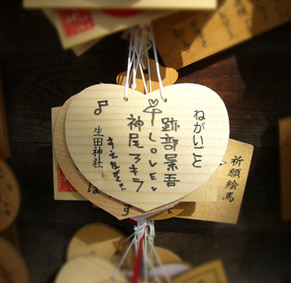 ねがいこと
跡部景吾
♡LOVE♡
神尾アキラ
生田神社
祈願絵馬